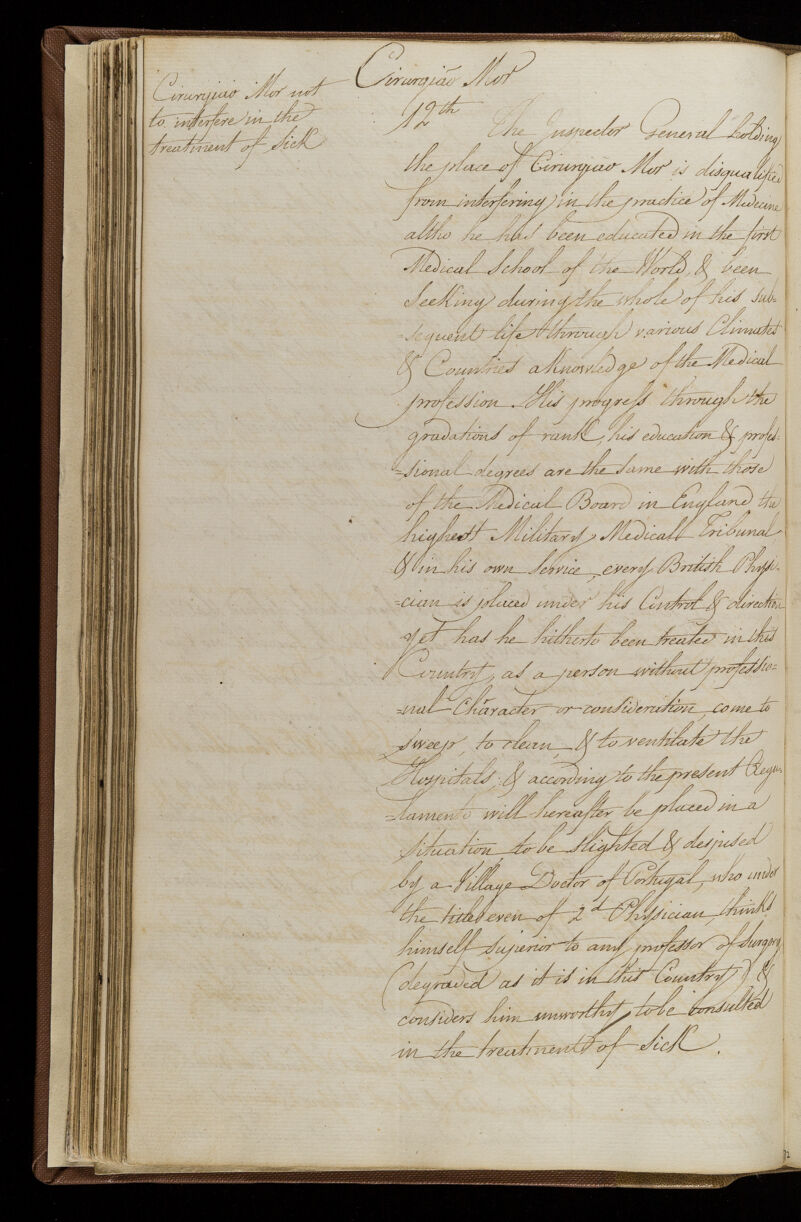 Cirurgiaõ Mor not
to interfere in the
treatment of Sick
Cirurgiaõ Mor
12th
The Inspector General holding
the place of Cirurgiao Mor is disqualified
from interfering in the practice of Medecine
altho he has been educated in the first
Medical School of the World, & been
seeking during the whole of his sub-
sequent life through various Climates
& Countries a knowledge of the Medical
profession. His progress through the
gradations of rank, his education & profes-
=sional degrees are the same with those
of the Medical Board in England the
highest Military Medical Tribunal
& in his own Service, every British Physi-
=cian is placed under his Control & direction
yet has he hitherto been treated in this
Country, as a person without professio=
=nal Character or consideration, come to
sweep, to clean, & to ventilate the
Hospitals, & according to the present Regu-
=lamento will hereafter be placed in a
situation to be slighted & despised
by a Village Doctor of Portugal, who under
the title even of 2d Physician, thinks
himself superior to any professor of Surgery
(degraded as it is in this Country) &
considers him unworthy to be consulted
in the treatment of Sick.